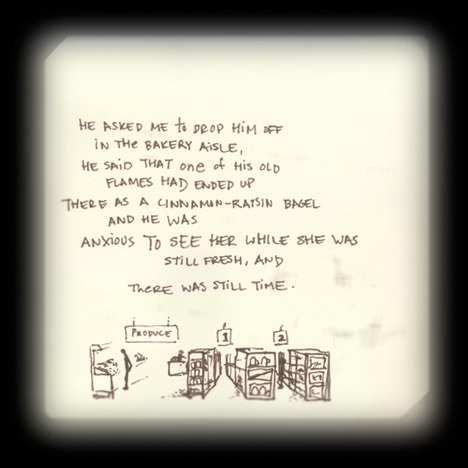 HE ASKED ME TO DROP HIM OFF
IN THE BAKERY AISLE,
HE SAID THAT ONE OF HIS OLD
FLAMES HAD ENDED UP
THERE AS A CINNAMON-RAISIN BAGEL
AND HE WAS
ANXIOUS TO SEE HER WHILE SHE WAS
STILL FRESH, AND
THERE WAS STILL TIME.
PRODUCE
1
2